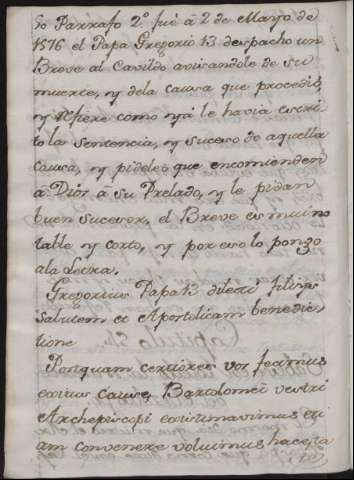 so Parrafo 2º fué á 2 de Marzo de
1576 el Papa Gregorio 13 despacho un
Breve al Cavildo avisandole de su
muerte, y dela causa que procedió,
y refiere como yá le havia escri
to la sentencia, y suceso de aquella
causa, y pideles que encomienden
á Dios á su Prelado, y le pidan
buen sucesor, el Breve es mui no
table y corto, y por eso lo pongo
ala Letra.
Gregorius Papa 13 dilecti filii
salutem et Apostolicam benedic
tione
Postquam certiores vos fecimus
exitus Cause, Bartolomei vestri
Archepiscopi existimavimus eti
am convenere voluimus hac esta